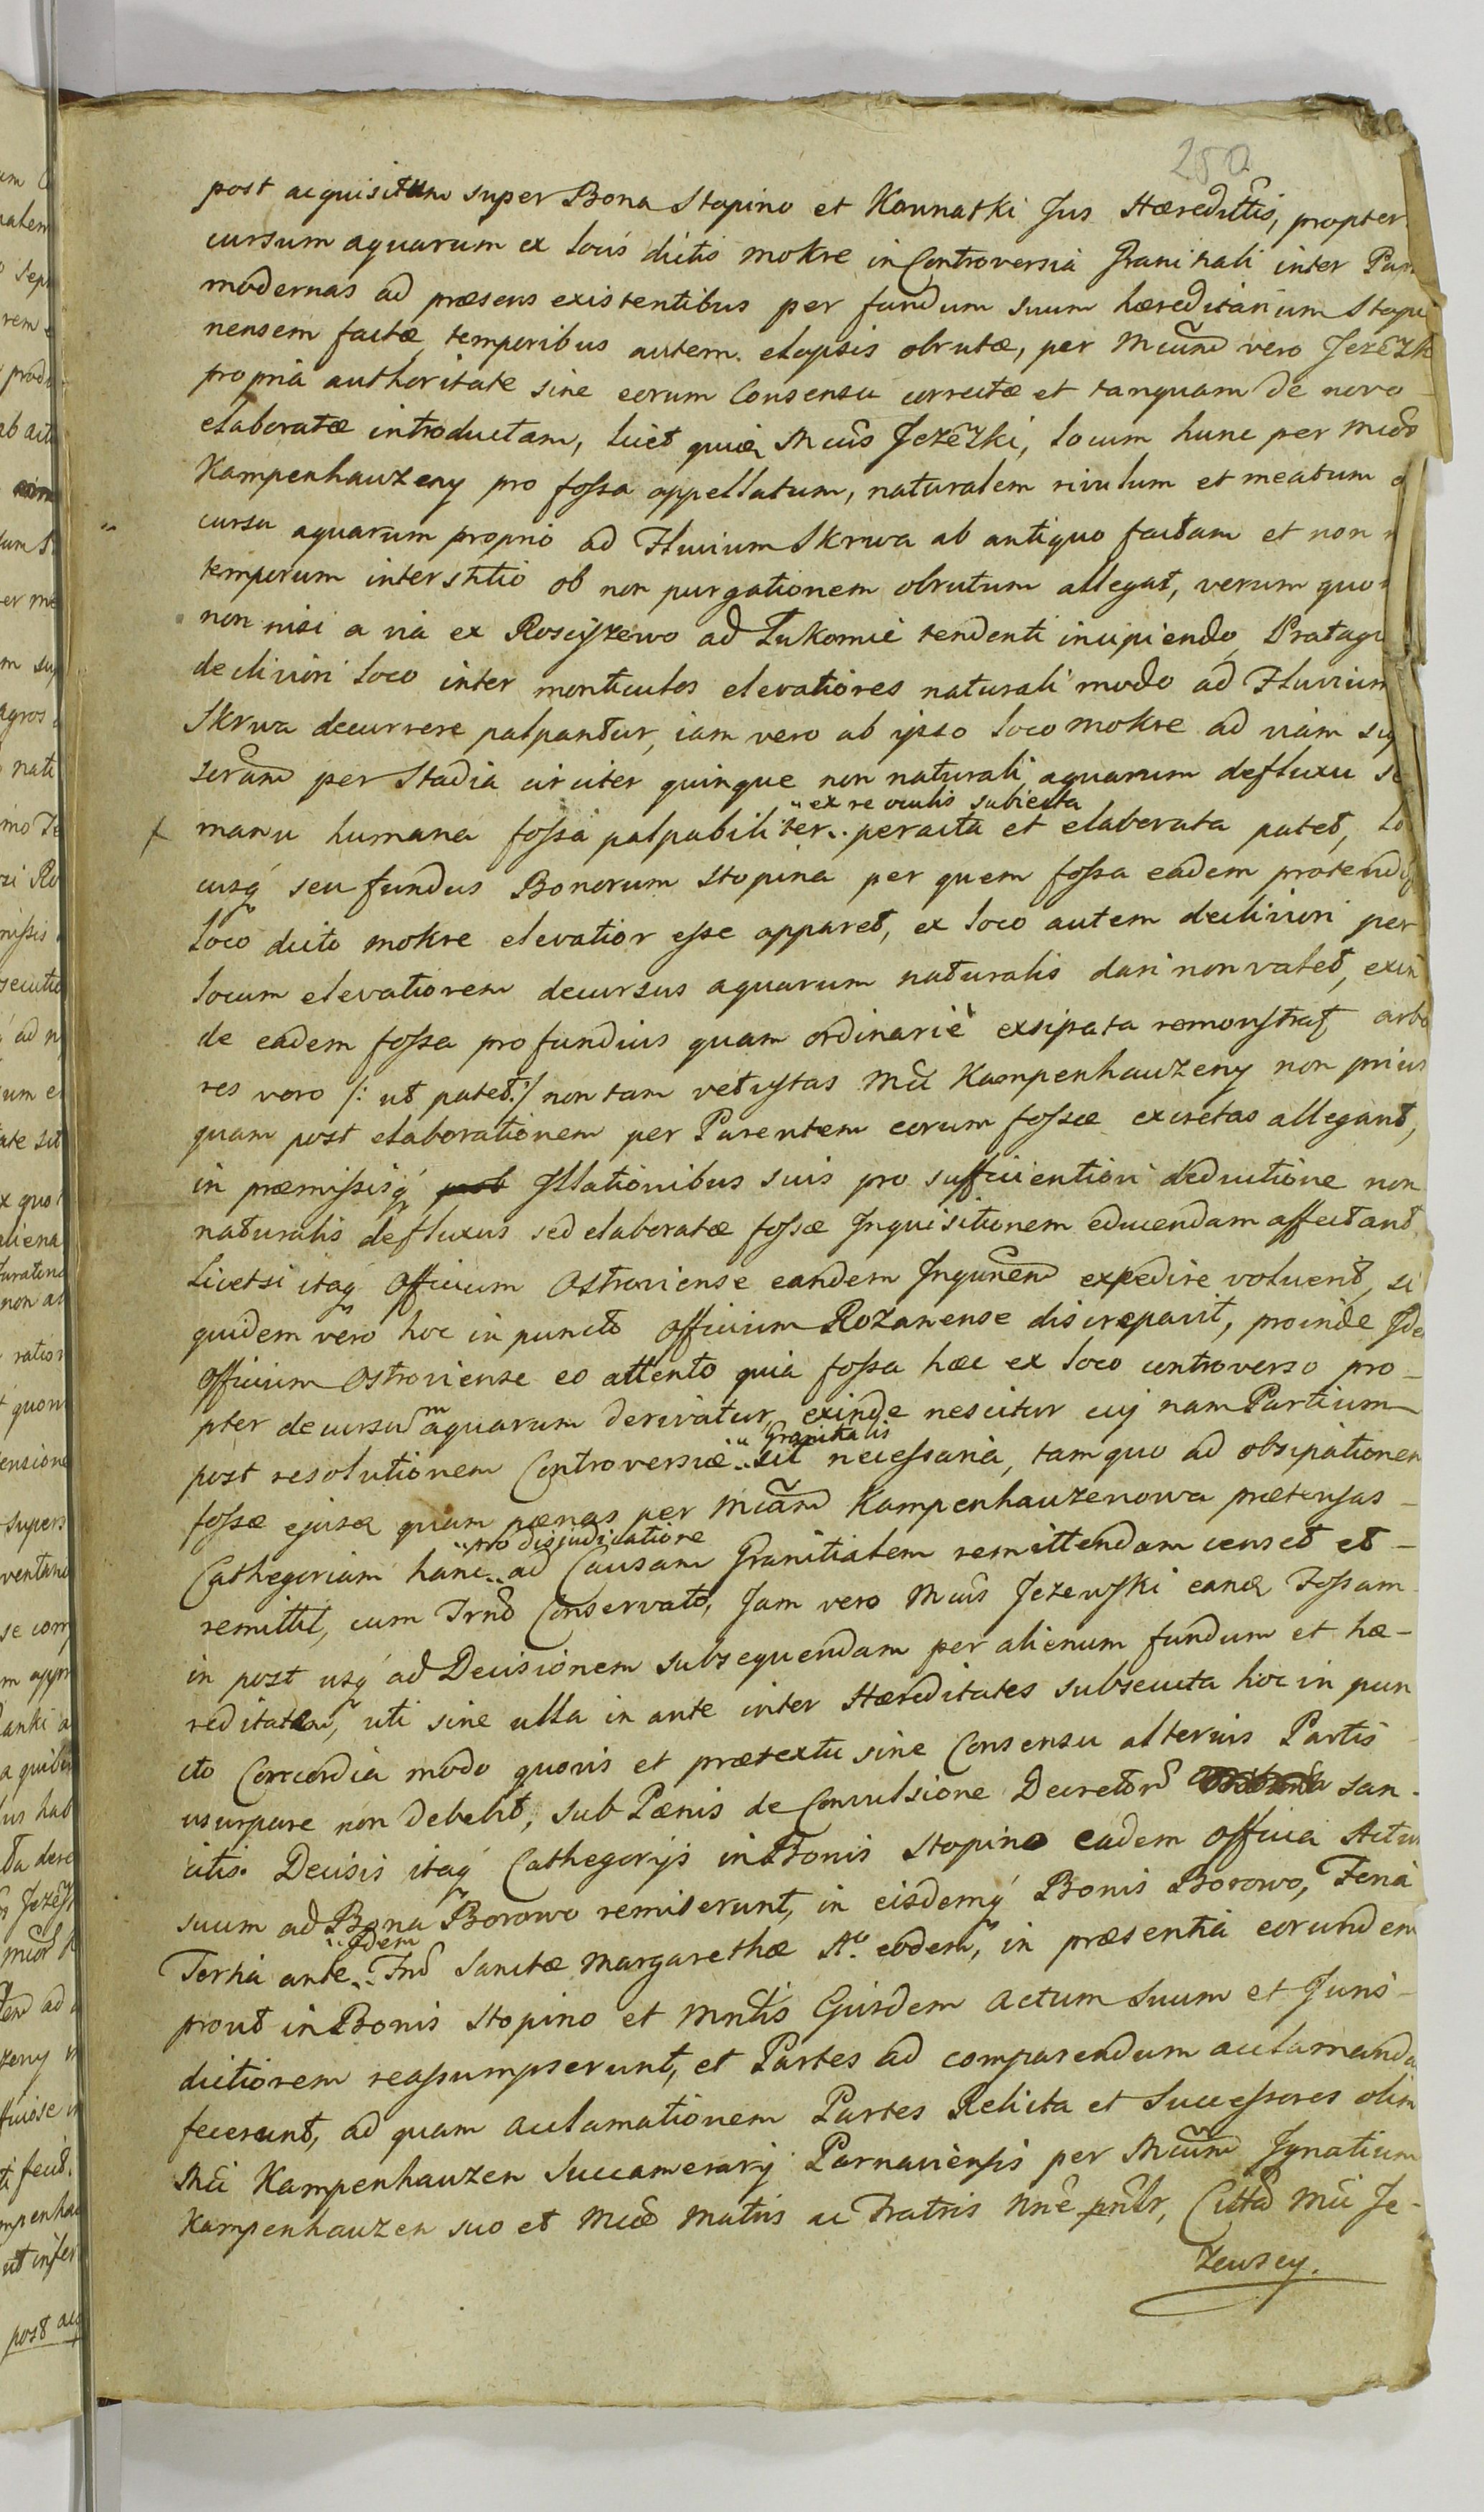 250
post acquisitum super Bona Stopino et Kownatki Jus Hæredittis, propter
cursum aquarum ex locis dictis mokre in Controversia Granitiali inter Par
modernas ad præsens existentibus per fundum suum hæreditarium Stopi
nensem factæ, temporibus autem elapsis obrutæ, per Mcum vero Jezewsk
propria authoritate sine eorum Consensu correctæ et tanquam de novo
elaboratæ introductam, licet quia Mcus Jezewski, locum hunc per Mcos
Kampenhauzeny pro fossa appellatum, naturalem rivulum et meatum
cursu aquarum proprio ad Fluvium Skrwa ab antiquo factam et non
temporum interstitio ob non purgationem obrutum allegat, verum quo
non nisi a via ex Rosciszewo ad Lukomie tendenti incipiendo,
decliviori loco inter monticulos elevatiores naturali modo ad Fluvium
Skrwa decurrere palpantur, iam vero ab ipso loco mokre ad viam su
scram per Stadia circiter quinque non naturali aquarum defluxu se
" ex re oculis subiecta
manu humana fossa palpabiliter .. peracta et elaborata patet, Lo
cusq seu fundus Bonorum Stopina per quem fossa eadem protendi
loco dicto mokre elevatior esse apparet, ex loco autem decliviori per
locum elevatiorem decursus aquarum naturalis dari non valet, exin
de eadem fossa profundius quam ordinarie exsipata remonstrat arbo
res vero /: ut patet :/ non tam vetustas Mci Kampenhauzeny non prius
quam post elaborationem per Parentem eorum fossæ excretas allegant,
in præmissisq Illationibus suis pro sufficientiori deductione non
naturalis defluxus sed elaboratæ fossæ Inquisitionem educendam affectant
Licetsi itaq Officium Ostroviense eandem Inqunem expedire voluerit, si
quidem vero hoc in puncto Officium Rozanense discrepavit, proinde Ide
Officium Ostroviense eo attento quia fossa hæc ex loco controverso pro-
pter decursum aquarum derivatur, exinde nescitur cuj nam Partium
" Granitialis
post resolutionem Controversiæ .. sit necessaria, tam quo ad obsipationem
fossæ ejusd quam pænas per Mcam Kampenhauzenowa prætensas -
" pro disjudicatione
Cathegoriam hanc .. ad Causam Granitialem remittendam censet et -
remittit, cum Trno Conservato, Jam vero Mcus Jezewski eand Fossam
in post usq ad Decisionem subsequendam per alienum fundum et hæ-
reditatem, uti sine ulla in ante inter Hæreditates subsecuta hoc in pun
cto Concordia modo quovis et prætextu sine Consensu alterius Partis
usurpare non debebit, sub Pænis de Convulsione Decretor san-
citis. Decisis itaq Cathegorijs in Bonis Stopino eadem Officia Actum
suum ad Bona Borowo remiserunt, in eisdemq Bonis Borowo, Feria
" Idem
Tertia ante .. Fnd Sanctæ Margarethæ Ao eodem, in præsentia eorundem
prout in Bonis Stopino et Mntis Eiusdem Actum suum et Juris-
dictionem reassumpserunt, et Partes ad comparendum acclamanda
fecerunt, ad quam acclamationem Partes Relicta et Successores olim
Mci Kampenhauzen Succamerarij Parnaviensis per Mcum Ignatium
Kampenhauzen suo et Mcor Matris ac Fratris nne pntbr, Citta Mci Je-
zewscy.